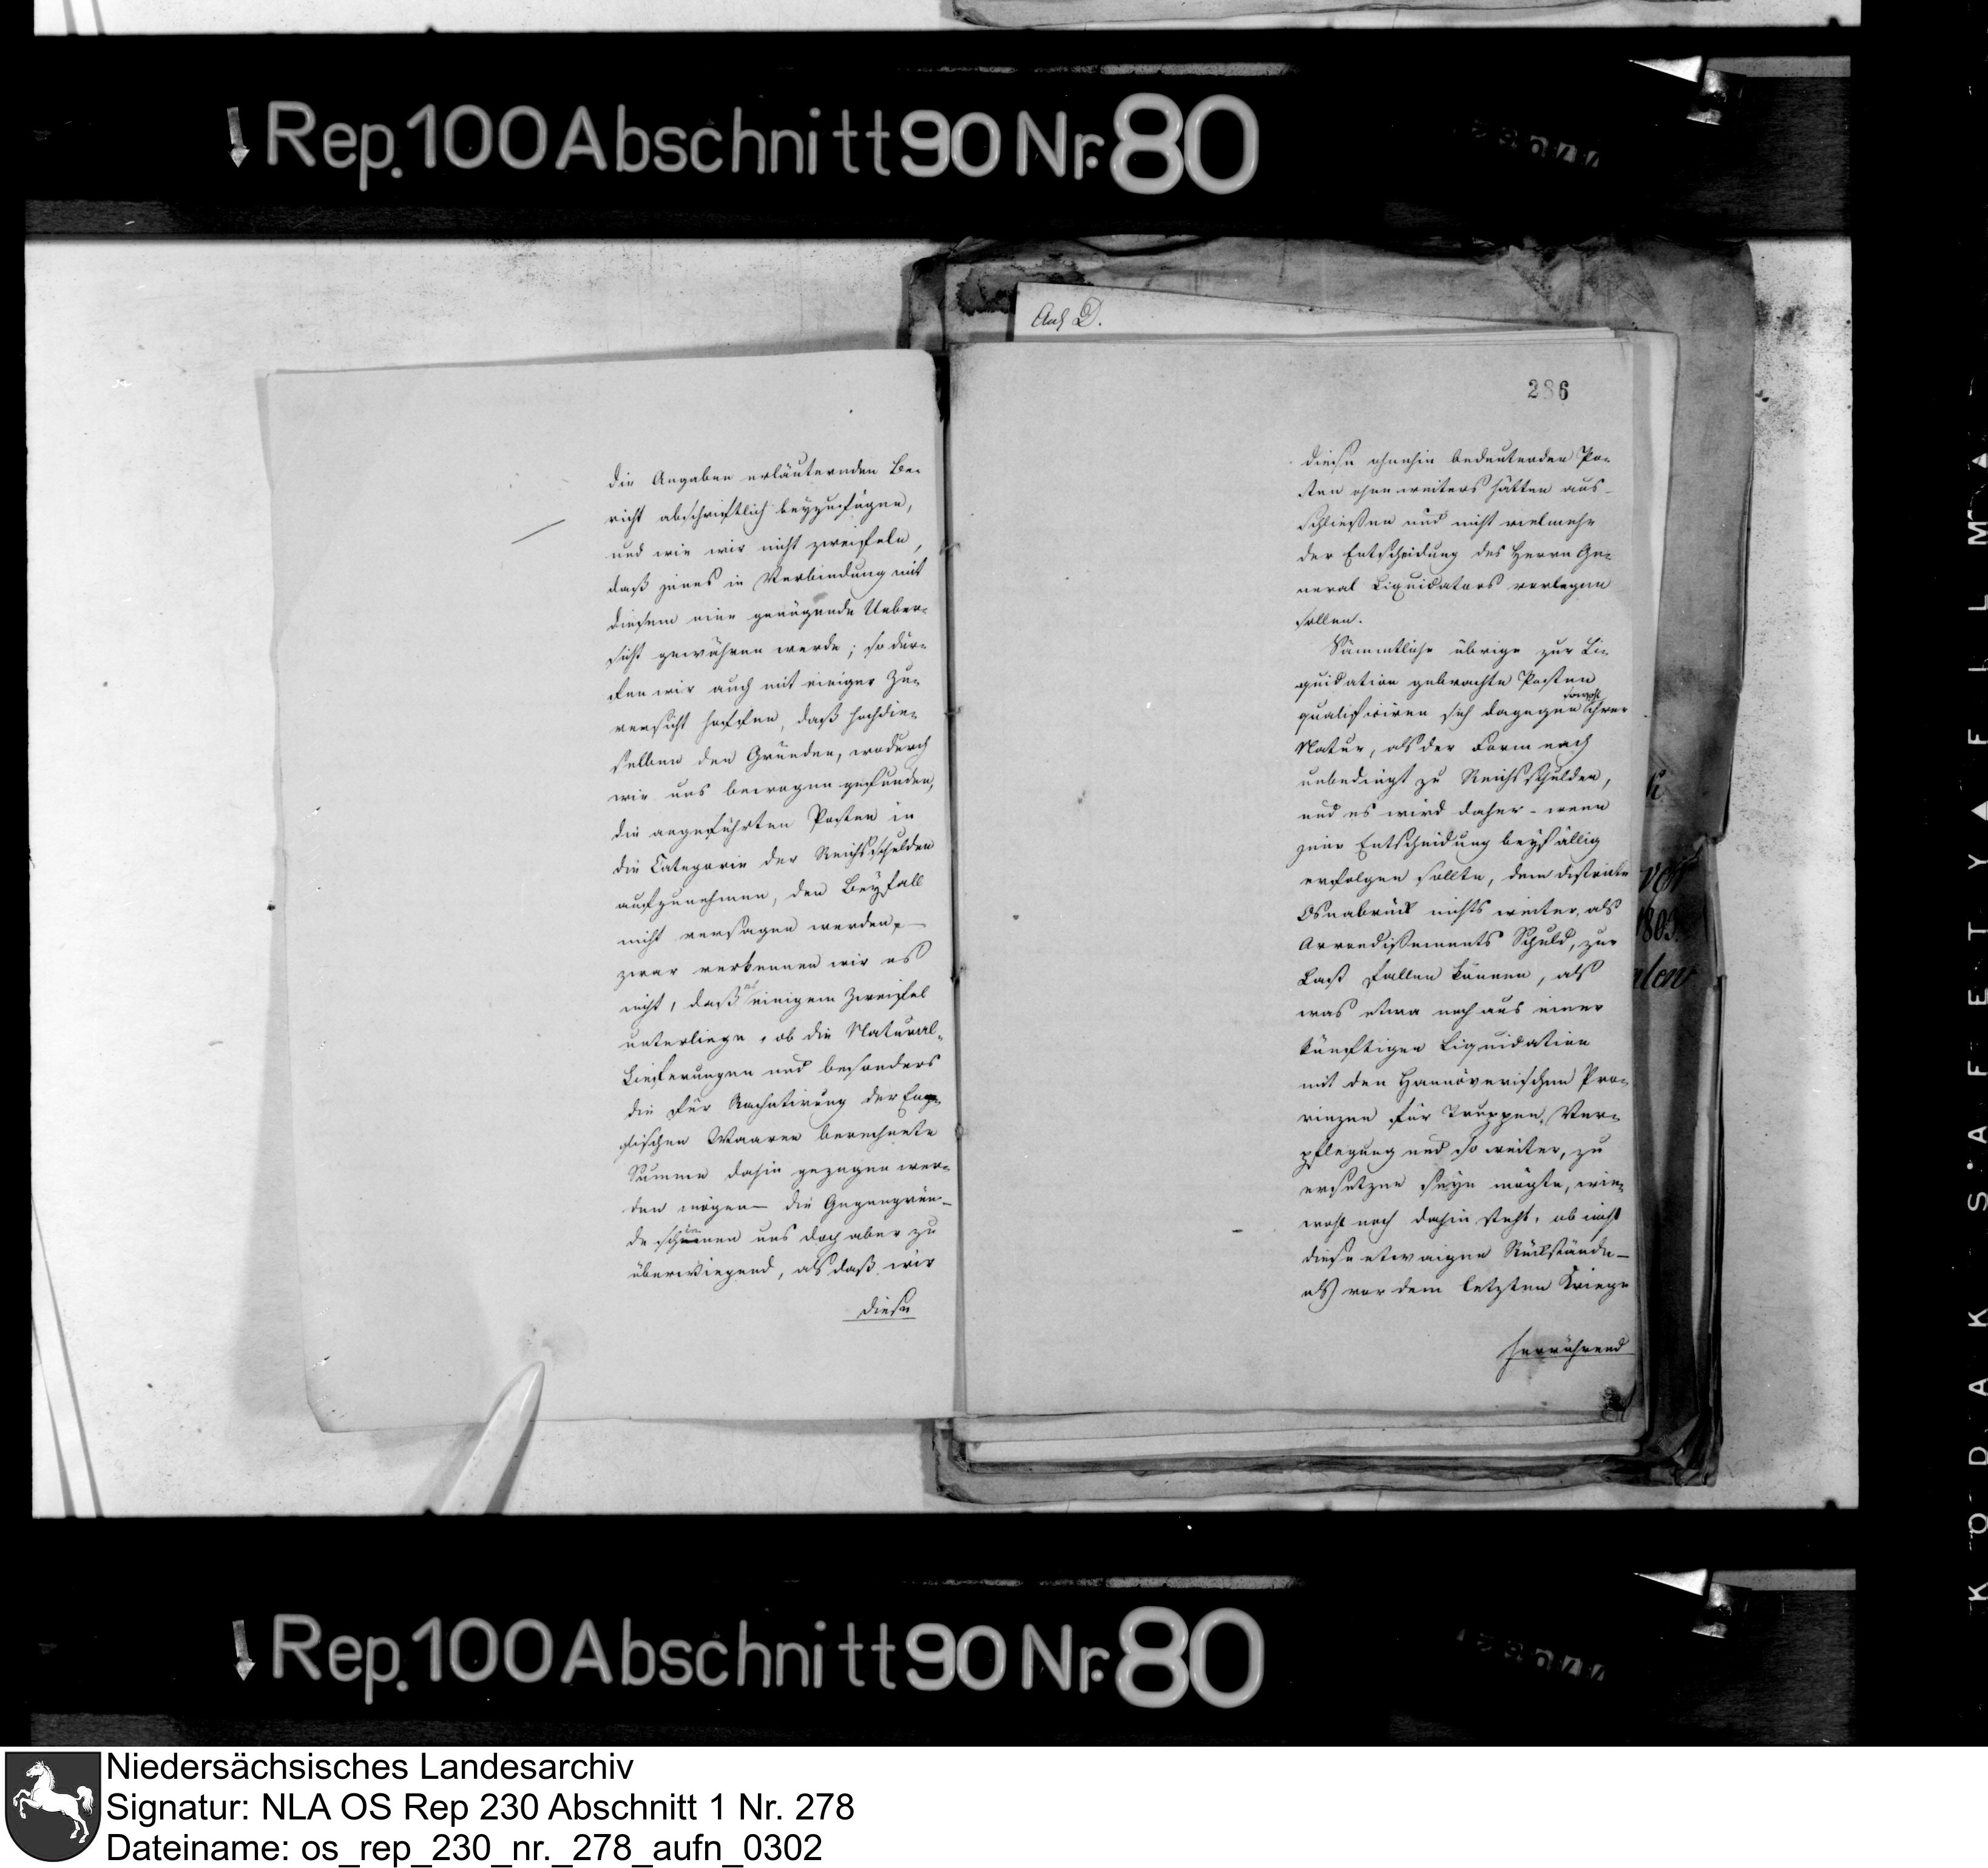 Rep. 100 Abschnitt 90 Nr. 80
Anl D.
286
die Angaben erläuternden Be-
richt abschriftlich beyzufügen,
und wie wir nicht zweifeln,
daß jenes in Verbindung mit
diesem eine genügende Ueber-
sicht gewähren werde; so dür-
fen wir auch mit einiger Zu-
versicht hoffen, daß hochdie-
selben den Gründen, wodurch
wir uns bewogen gefunden,
die angeführten Posten in
die Categorie der Reichsschulden
aufzunehmen, den Beyfall
nicht versagen werden, —
zwar verkennen wir es
nicht, daß es einigem Zweifel
unterliege, ob die Natural-
Lieferungen und besonders
die für Rachatirung der Eng-
lischen Waaren berechnete
Summe dahin gezogen wer-
den mögen — die Gegengrün-
de schienen uns doch aber zu
überwiegend, als daß wir
diese
diese ohnehin bedeutenden Po-
sten ohne weiters hätten aus-
schließen und nicht vielmehr
der Entscheidung des Herrn Ge-
neral Liquidators vorlegen
sollen.
Sämmtliche übrige zur Li-
quidation gebrachte Posten
qualificiren sich dagegen sowohl ihrer
Natur, als der Form nach
unbedingt zu Reichsschulden,
und es wird daher - wenn
jene Entscheidung beyfällig
erfolgen sollte, dem Districte
Osnabrück nichts weiter, als
Arrondissements Schuld, zur
Last fallen können, als
was etwa noch aus einer
künftigen Liquidation
mit den Hannöverischen Pro-
vinzen für Truppen, Ver-
pflegung und so weiter, zu
ersetzen seyn mögte, wie-
wohl noch dahin steht, ob nicht
diese etwaigen Rückstände —
als vor dem letzten Kriege
herrührend
von
1803.
Rep. 100 Abschnitt 90 Nr. 80
KODAK SAFETY FILM
Niedersächsisches Landesarchiv
Signatur: NLA OS Rep 230 Abschnitt 1 Nr. 278
Dateiname: os_rep_230_nr._278_aufn_0302